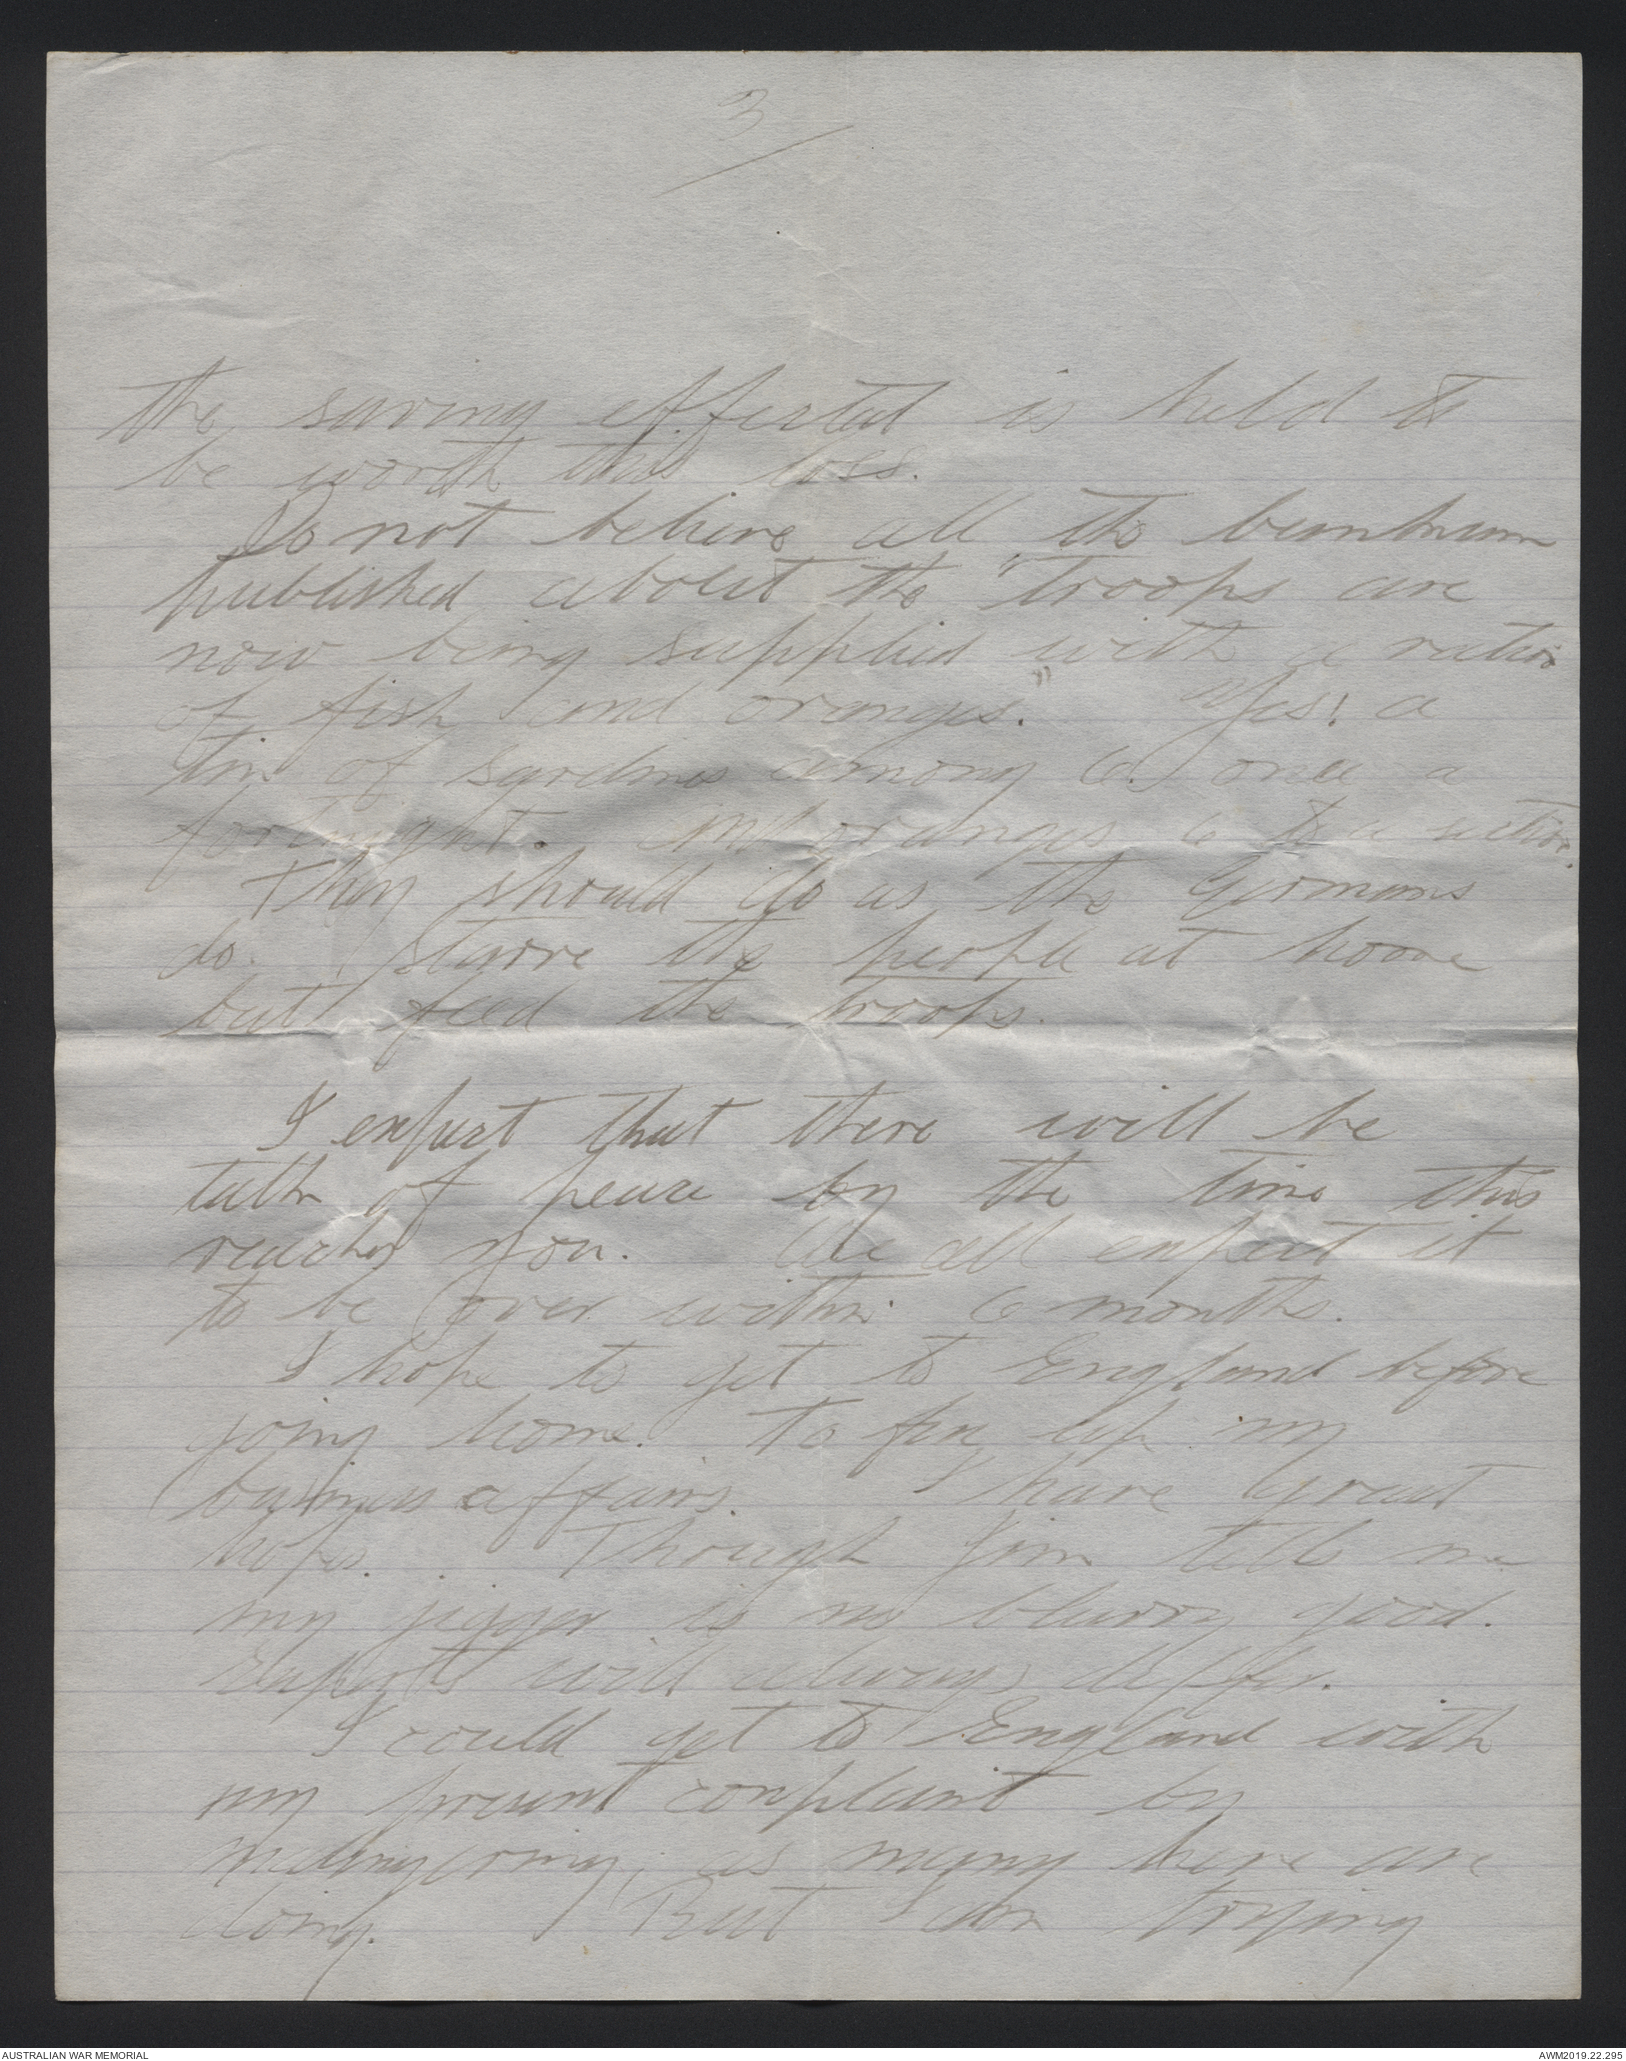 3
the saving effected is held to
be worth this loss.
Do not believe all the bumbum
published about the "troops are
now being supplied with a ration
of fish and oranges." Yes! a
tin of sardines among 6. once a
fortnight. And oranges 6 to a section.
They should do as the Germans
do. Starve the people at home
but feed the troops.
I expect that there will be
talk of peace by the time this
reaches you. We all expect it
to be over within 6 months.
I hope to get to England before
going home. To fix up my
business affairs. I have great
hopes. Though Jim tells me
my jigger is no blurry good.
Experts will always differ.
I could get to England with
my present complaint by
malingering, as many here are
doing. But I am trying
AUSTRALIAN WAR MEMORIAL
AWM2019.22.295